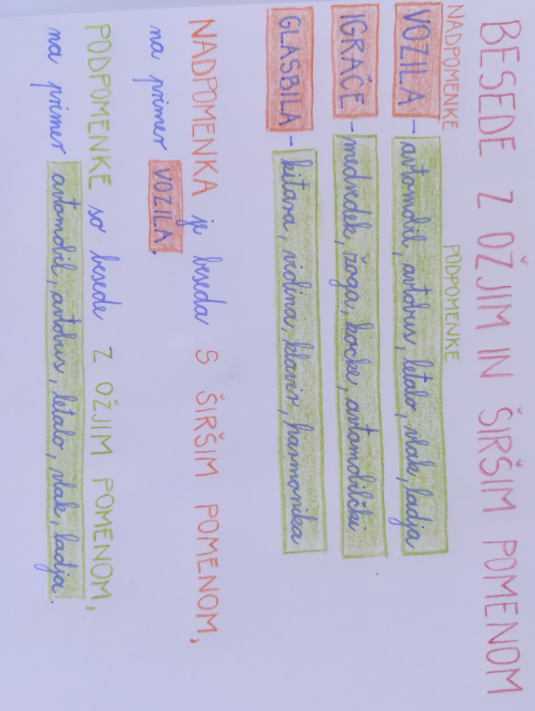 BESEDE Z OŽJIM IN ŠIRŠIM POMENOM
NADPOMENKE PODPOMENKE
VOZILA - avtomobil, avtobus, letalo, vlak, ladja
IGRAČE - medvedek, žoga, kocke, avtomobilčki
GLASBILA - kitara, violina, klavir, harmonika
NADPOMENKA je beseda S ŠIRŠIM POMENOM,
na primer VOZILA.
PODPOMENKE so besede Z OŽJIM POMENOM,
na primer avtomobil, avtobus, letalo, vlak, ladja.